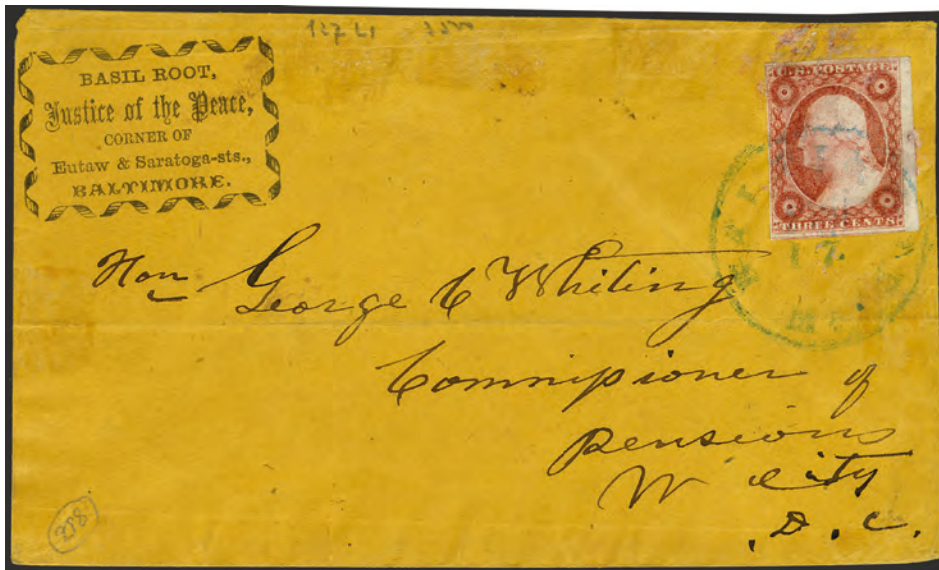 BASIL ROOT,
Justice of the Peace,
CORNER OF
Eutaw & Saratoga-sts.,
BALTIMORE.
U.S. POSTAGE
THREE CENTS
17
Hon George C Whiting
Commissioner of
Pensions
W City
D. C.
258